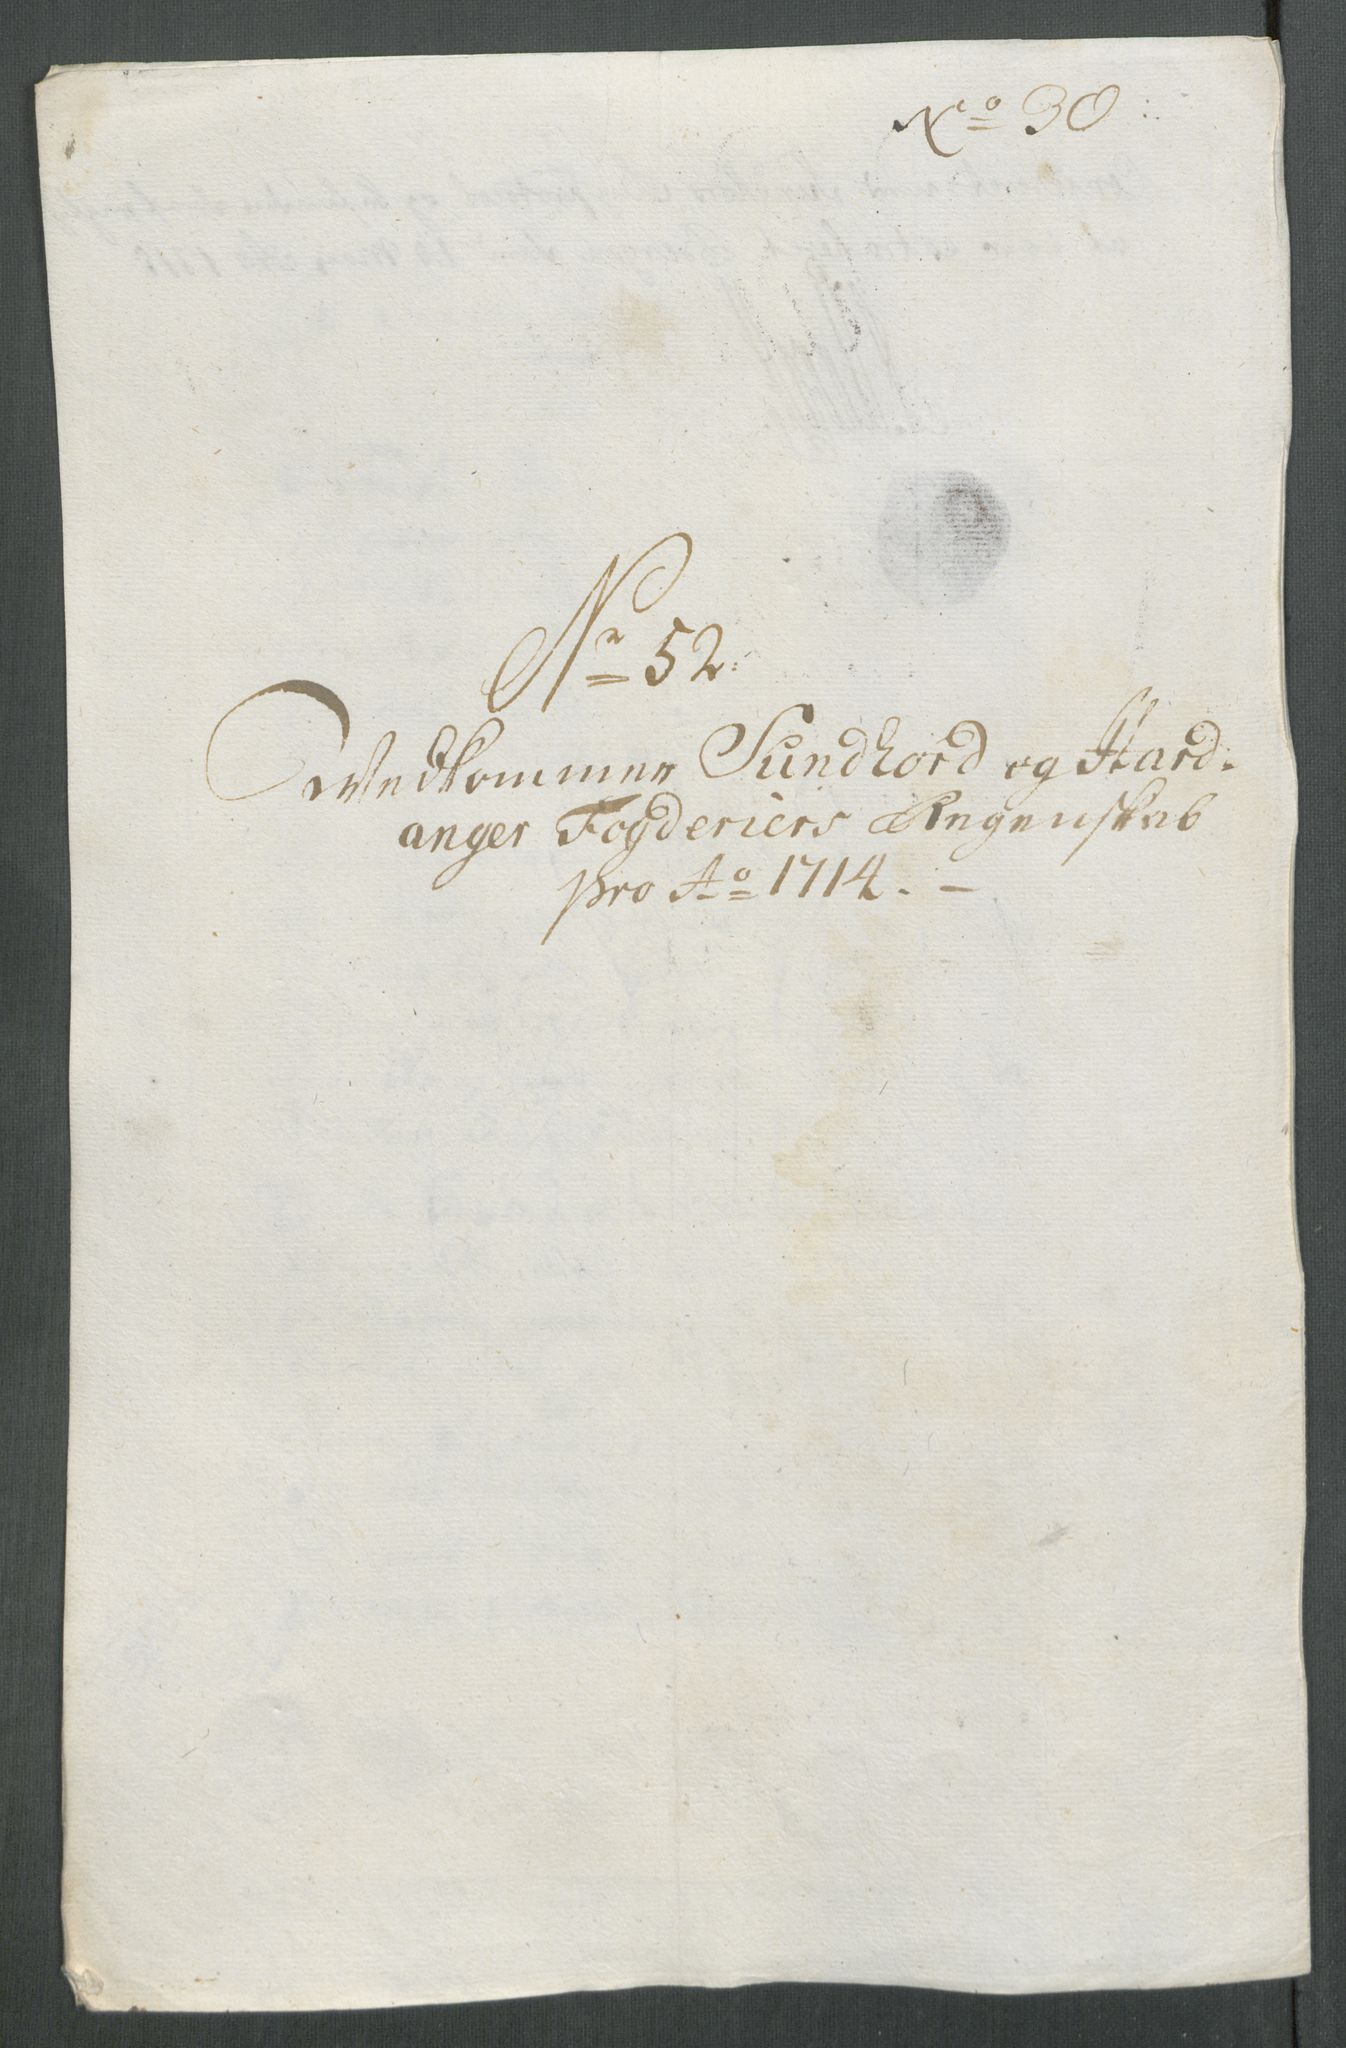 No 30
Nr 52.
Vedkommer Sundhord og Hard-
anger Fogderiers Regenskab
pro Ao 1714. –